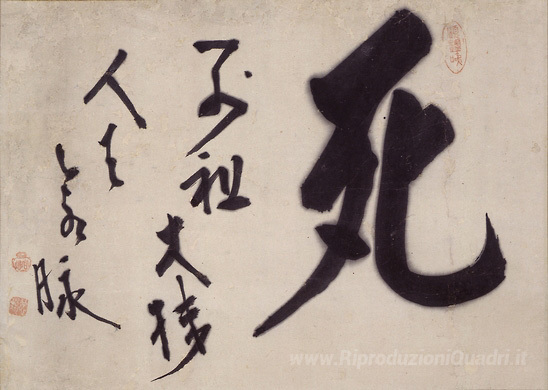 死
佛祖大機
人天命脈
www.RiproduzioniQuadri.it